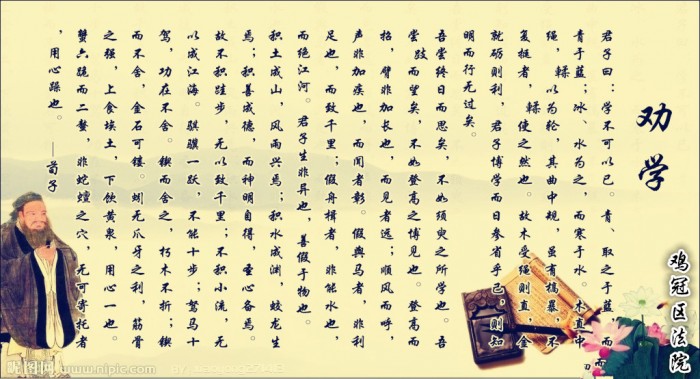 劝学
君子曰：学不可以已。青、取之于蓝，而
青于蓝；冰、水为之，而寒于水。木直中
绳，輮以为轮，其曲中规，虽有槁暴，不
复挺者，輮使之然也。故木受绳则直，金
就砺则利，君子博学而日参省乎己，则知
明而行无过矣。
吾尝终日而思矣，不如须臾之所学也。吾
尝跂而望矣，不如登高之博见也。登高而
招，臂非加长也，而见者远；顺风而呼，
声非加疾也，而闻者彰。假舆马者，非利
足也，而致千里；假舟楫者，非能水也，
而绝江河。君子生非异也，善假于物也。
积土成山，风雨兴焉；积水成渊，蛟龙生
焉；积善成德，而神明自得，圣心备焉。
故不积跬步，无以致千里；不积小流，无
以成江海。骐骥一跃，不能十步；驽马十
驾，功在不舍。锲而舍之，朽木不折；锲
而不舍，金石可镂。蚓无爪牙之利，筋骨
之强，上食埃土，下饮黄泉，用心一也。
蟹六跪而二螯，非蛇蟺之穴，无可寄托者
，用心躁也。 ——荀子
鸡冠区法院
昵图网
www.nipic.com